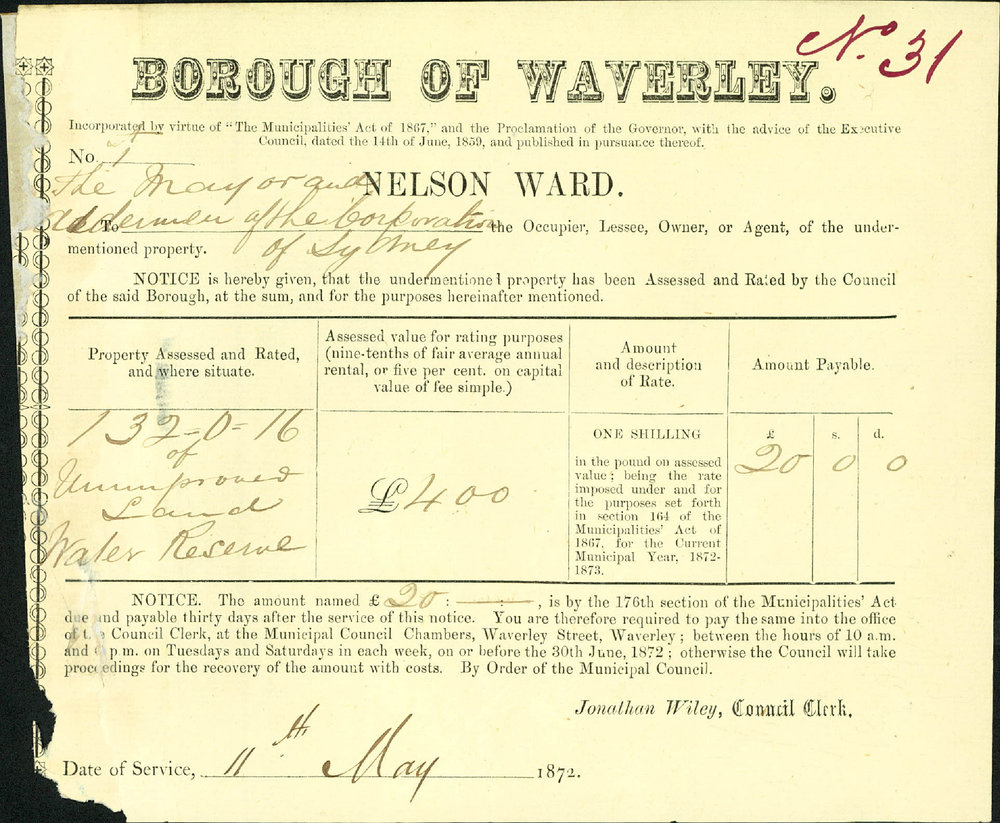 No. 31
BOROUGH OF WAVERLEY.
Incorporated by virtue of "The Municipalities' Act of 1867," and the Proclamation of the Governor, with the advice of the Executive
Council, dated the 14th of June, 1859, and published in pursuance thereof.
No.
NELSON WARD.
The Mayor and
Aldermen of the Corporation
of Sydney
To the Occupier, Lessee, Owner, or Agent, of the under-
mentioned property.
NOTICE is hereby given, that the undermentioned property has been Assessed and Rated by the Council
of the said Borough, at the sum, and for the purposes hereinafter mentioned.
Property Assessed and Rated,
and where situate.
132=0=16
of
Unimproved
Land
Water Reserve
Assessed value for rating purposes
(nine-tenths of fair average annual
rental, or five per cent. on capital
value of fee simple.)
£400
Amount
and description
of Rate.
ONE SHILLING
in the pound on assessed
value; being the rate
imposed under and for
the purposes set forth
in section 164 of the
Municipalities' Act of
1867, for the Current
Municipal Year, 1872-
1873.
Amount Payable.
£ s. d.
20 0 0
NOTICE. The amount named £ 20 : , is by the 176th section of the Municipalities' Act
due and payable thirty days after the service of this notice. You are therefore required to pay the same into the office
of the Council Clerk, at the Municipal Council Chambers, Waverley Street, Waverley; between the hours of 10 a.m.
and p.m. on Tuesdays and Saturdays in each week, on or before the 30th June, 1872; otherwise the Council will take
proceedings for the recovery of the amount with costs. By Order of the Municipal Council.
Jonathan Wiley, Council Clerk.
Date of Service, 11th May 1872.